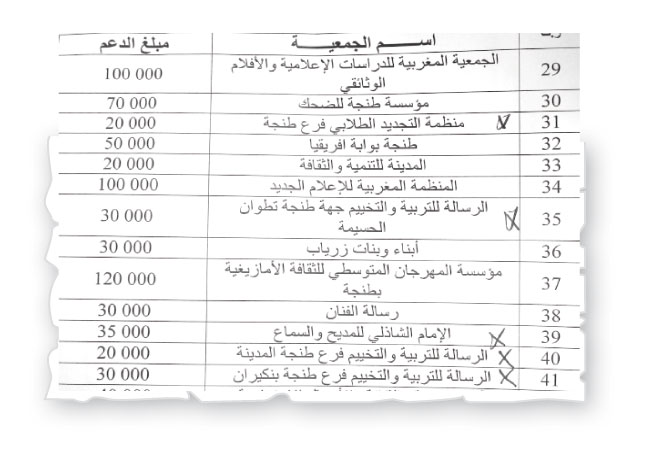 اســـــم الجمعيـــــة مبلغ الدعم
29 الجمعية المغربية للدراسات الإعلامية والأفلام 100 000
الوثائقي
30 مؤسسة طنجة للضحك 70 000
31 منظمة التجديد الطلابي فرع طنجة 20 000
32 طنجة بوابة افريقيا 50 000
33 المدينة للتنمية والثقافة 20 000
34 المنظمة المغربية للإعلام الجديد 100 000
35 الرسالة للتربية والتخييم جهة طنجة تطوان 30 000
الحسيمة
36 أبناء وبنات زرياب 30 000
37 مؤسسة المهرجان المتوسطي للثقافة الأمازيغية 120 000
بطنجة
38 رسالة الفنان 30 000
39 الإمام الشاذلي للمديح والسماع 35 000
40 الرسالة للتربية والتخييم فرع طنجة المدينة 20 000
41 الرسالة للتربية والتخييم فرع طنجة بنكيران 30 000